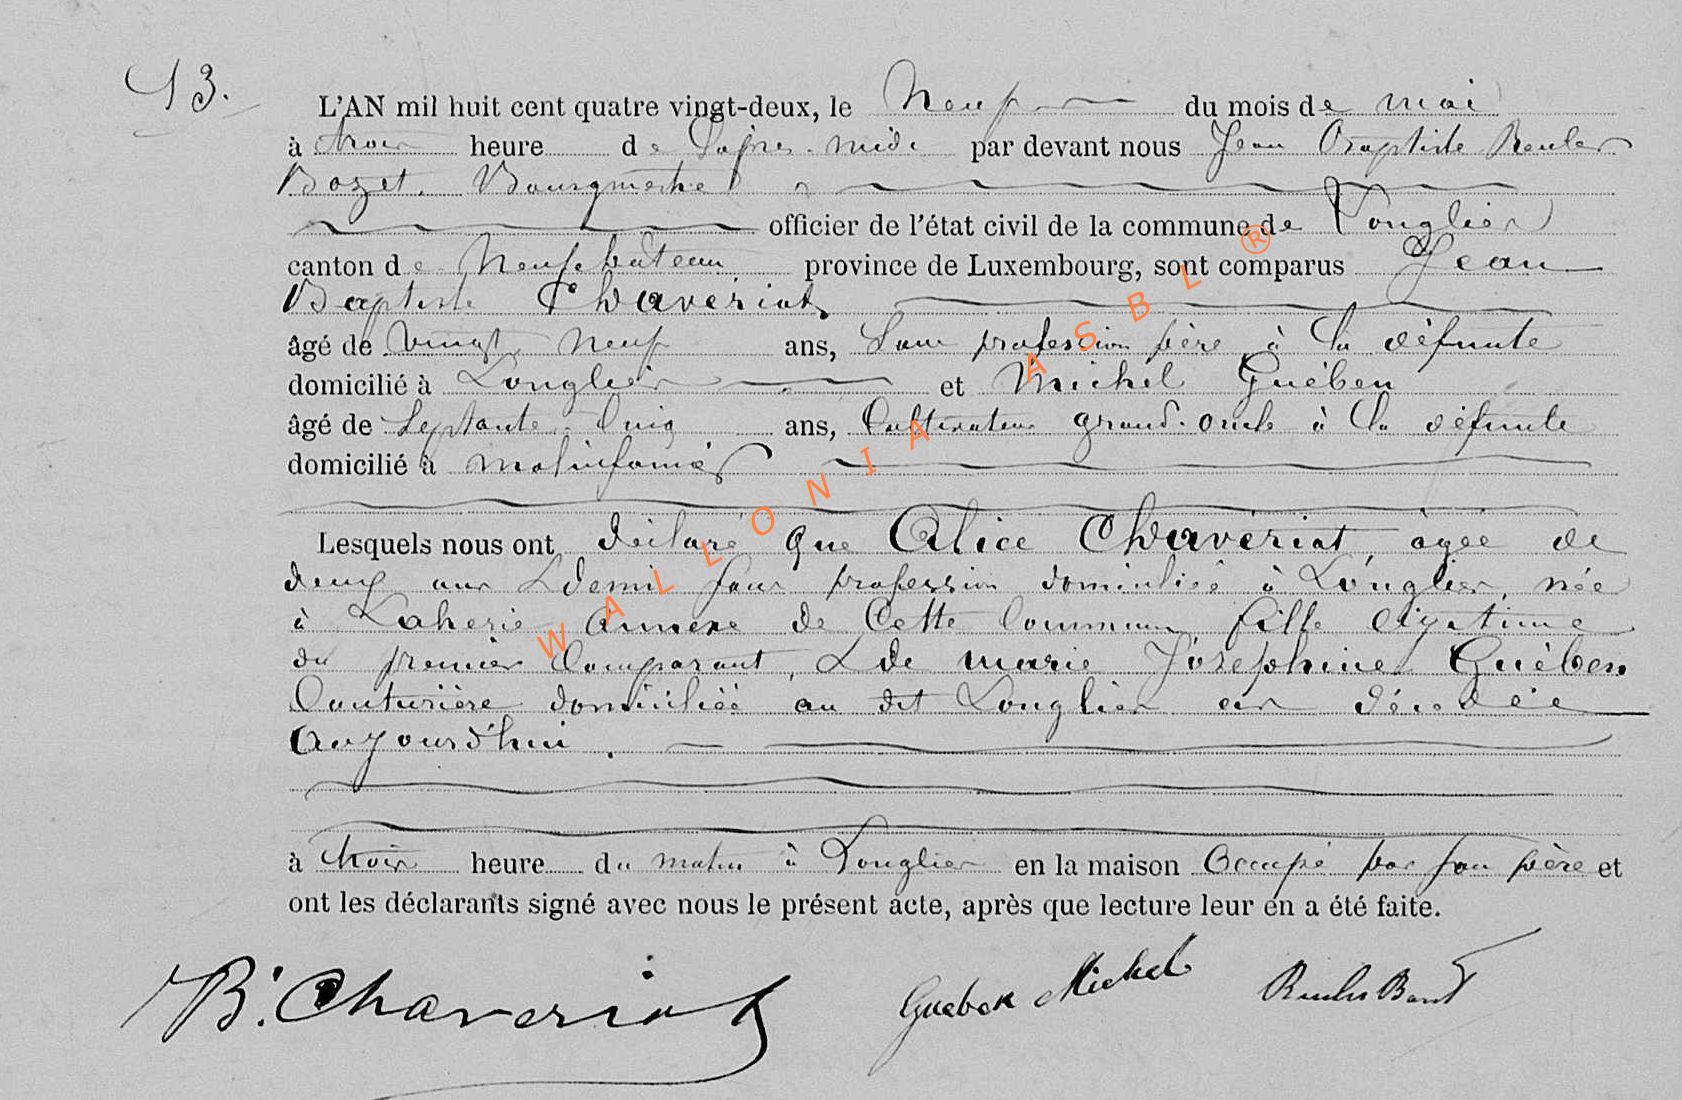 13.
L'AN mil huit cent quatre vingt-deux, le Neuf du mois de mai
à trois heure de l'après-midi par devant nous Jean Baptiste Reuler
Bozet, Bourgmestre
officier de l'état civil de la commune de Longlier
canton de Neufchâteau province de Luxembourg, sont comparus Jean
Baptiste Chavériat
âgé de vingt neuf ans, Sans profession père à la défunte
domicilié à Longlier et Michel Guében
âgé de Septante-Cinq ans, Cultivateur grand-oncle à la défunte
domicilié à Molinfaing
Lesquels nous ont déclaré que Alice Chavériat, agée de
deux ans & demi sans profession domiciliée à Longlier, née
à Laherie annexe de Cette Commune, fille légitime
du premier Comparant, & de marie Joséphine Guében
Couturière domiciliée au dit Longlier est décédée
aujourd'hui.
à trois heure du matin à Longlier en la maison Occupé par son père et
ont les déclarants signé avec nous le présent acte, après que lecture leur en a été faite.
B. Chaveriat Gueben Michel
WALLONIA ASBL ®